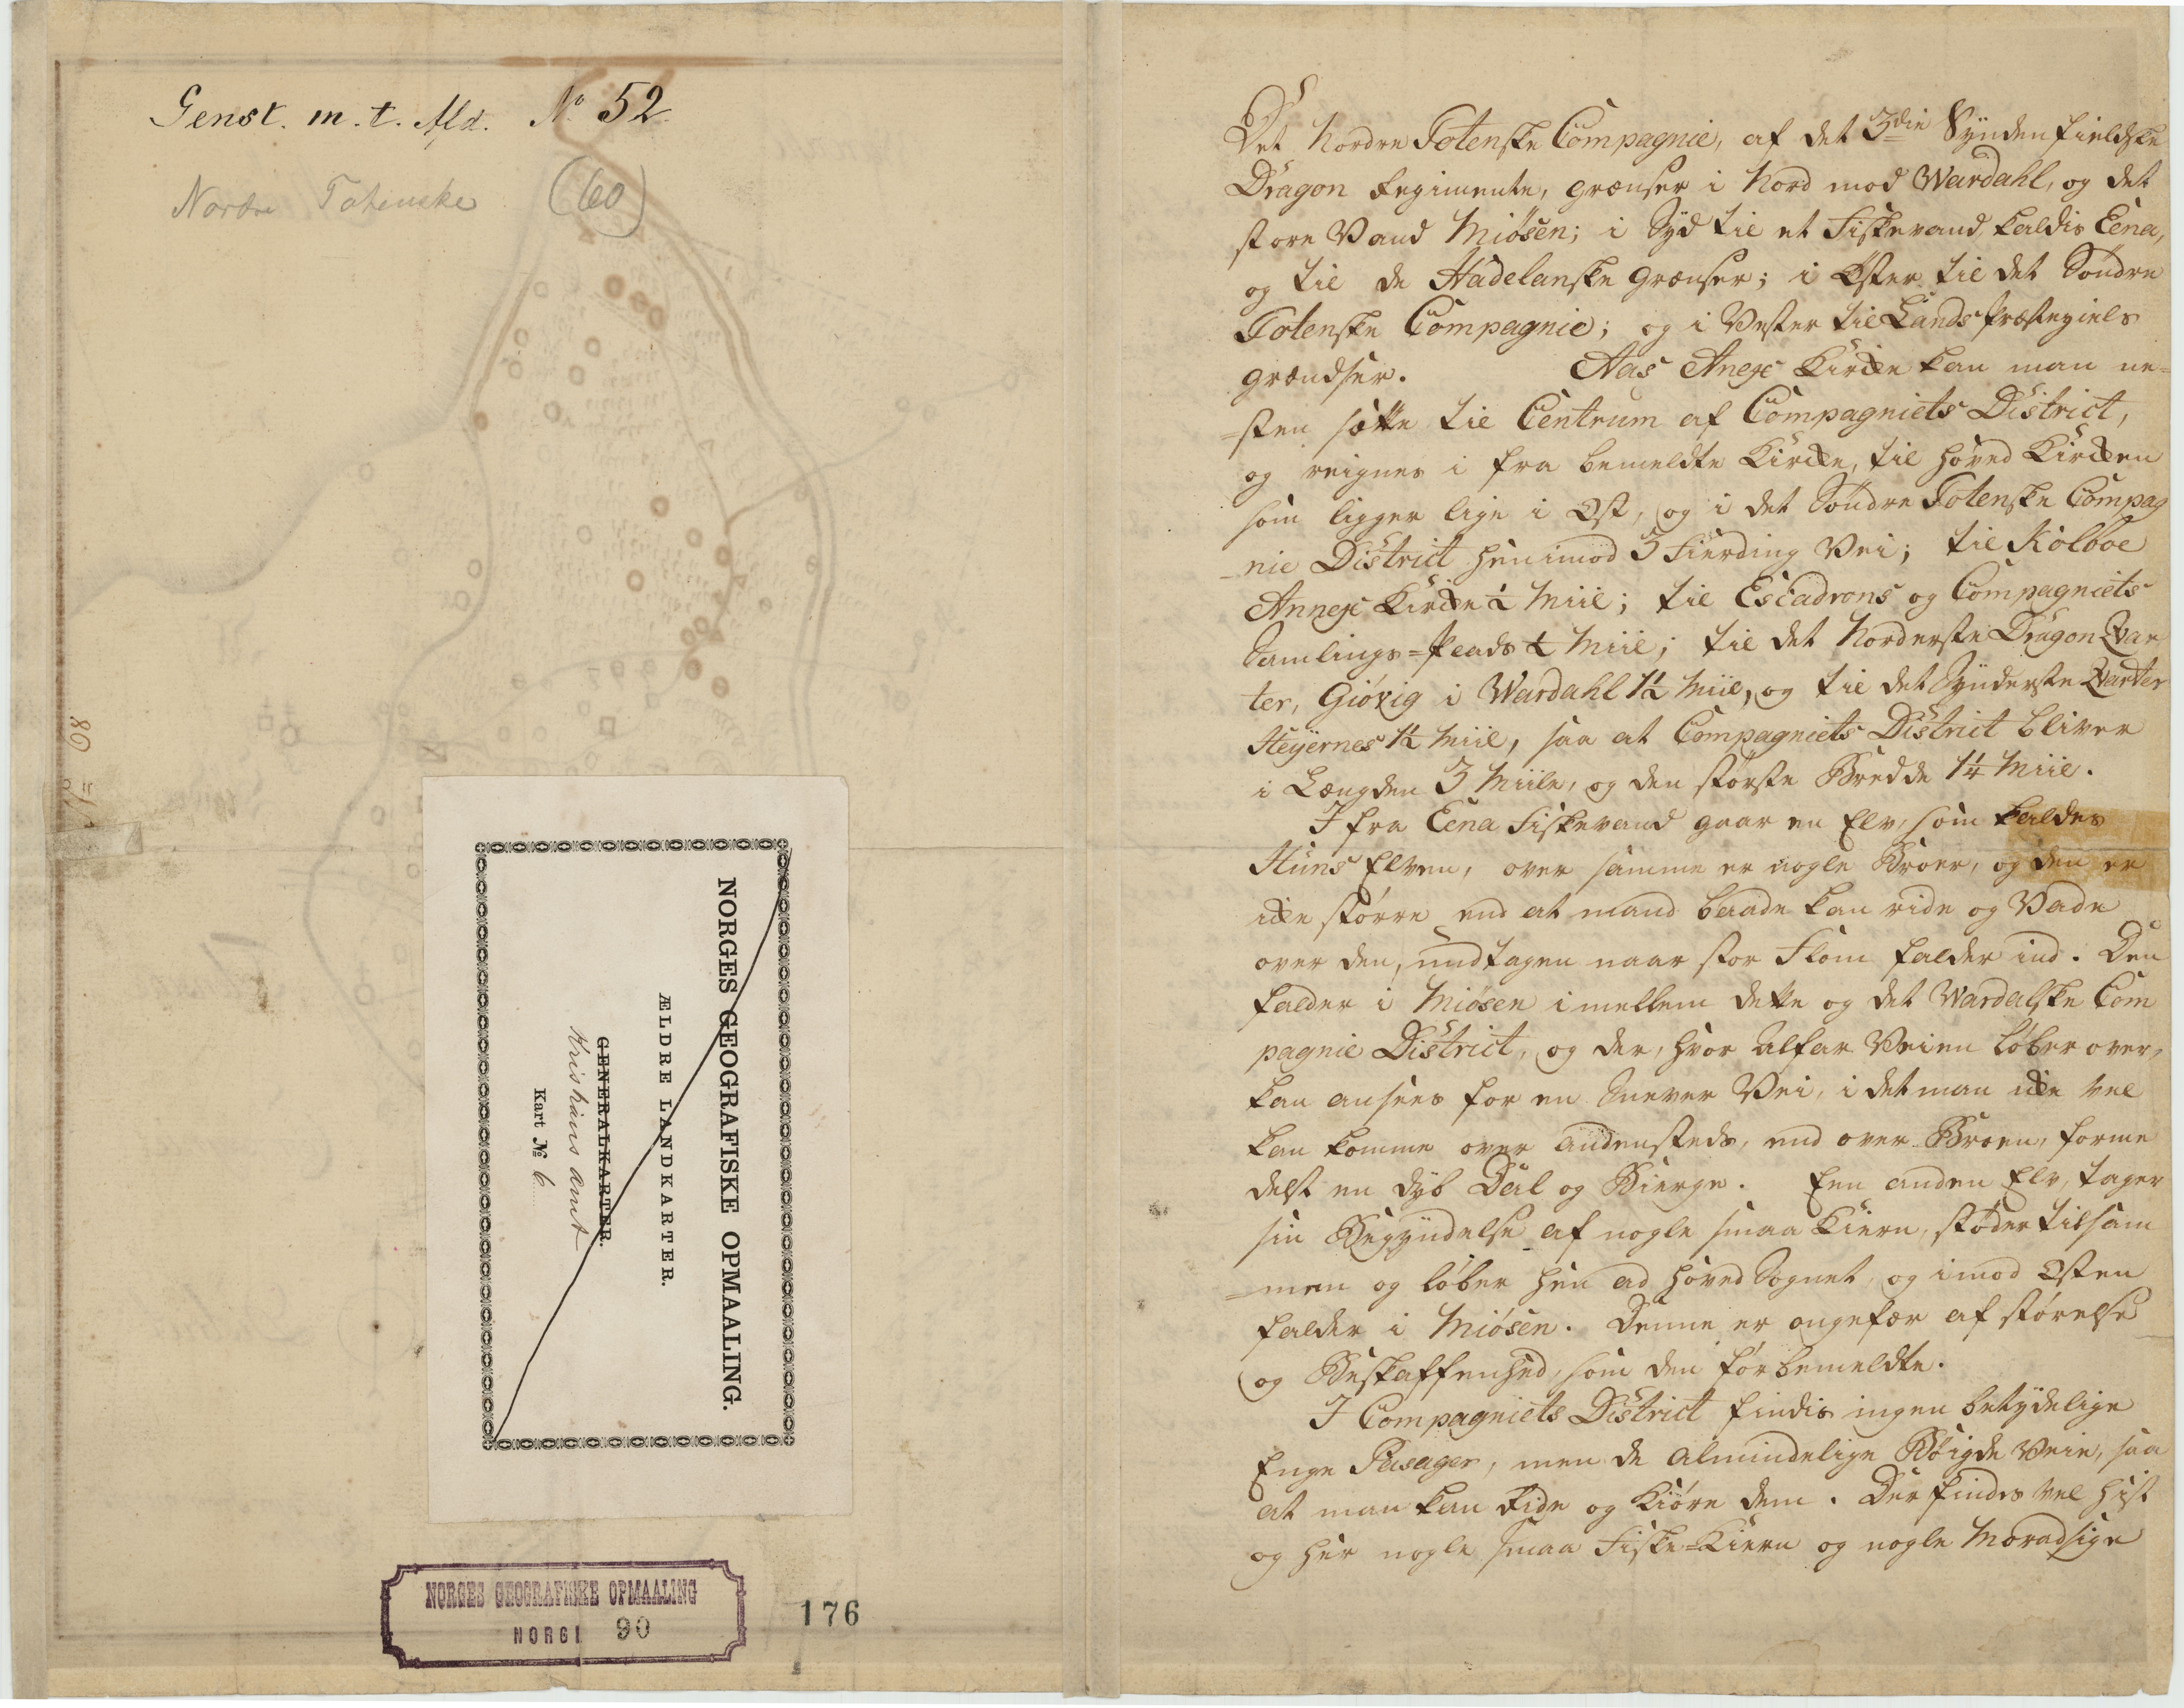 Genst. m. t. Afd. No 52
Nordre Totenske (60)
No 68
NORGES GEOGRAFISKE OPMAALING.
ÆLDRE LANDKARTER.
GENERALKARTER.
Kristians amt
Kart № 6
NORGES GEOGRAFISKE OPMAALING
NORGE 90
176
Det Nordre Totenske Compagnie, af det 3die Syndenfieldske
Dragon Regimente, grænser i Nord mod Wardahl, og det
store Vand Miösen; i Syd til et Fiskevand, kaldis Eena,
og til de Hadelanske Grænser; i Öster til det Söndre
Totenske Compagnie; og i Vester til Lands Præstegiels
Grændser. Aas Anex Kircke kan man ne=
=sten sætte til Centrum af Compagniets District,
og reignes i fra bemeldte Kircke, til Hoved Kircken
som ligger lige i Ost, og i det Söndre Totenske Compag
=nie District henimod 3 Fierding Vei; til Kolboe
Annex Kircke ½ Miil; til Escadrons og Compagniets
Samlings=Plads ½ Miil; til det Norderste Dragon Qvar
ter, Giövig i Wardahl 1½ Miil, og til det Synderste Qvarter
Heyernes 1½ Miil, saa at Compagniets District bliver
i Længden 3 Miile, og den störste Bredde 1¼ Miil.
I fra Eena Fiskevand gaar en Elv, som kaldes
Huns Elven, over samme er nogle Broer, og den er
icke större end at mand baade kan ride og Vade
over den, undtagen naar stor Flom falder ind. Den
falder i Miösen imellem dette og det Wardalske Com
pagnie District, og der, hvor Alfar Veien löber over,
kan ansees for en Snever Vei, i det man icke vel
kan komme over andensteds, end over Broen, forme
delst en dyb Dal og Bierge. Een anden Elv, tager
sin Begyndelse af nogle smaa Kiern, stöder tilsam
=men og löber hen ad Hoved Sognet, og imod Osten
falder i Miösen. Denne er ongefær af störelse
og Beskaffenhed, som den förbemeldte.
I Compagniets District findis ingen betydelige
Enge Pasager, men de almindelige Böigde Veie, saa
at man kan Ride og Kiöre dem. Der findes vel hist
og her nogle smaa Fiske=Kiern og nogle Moradsige